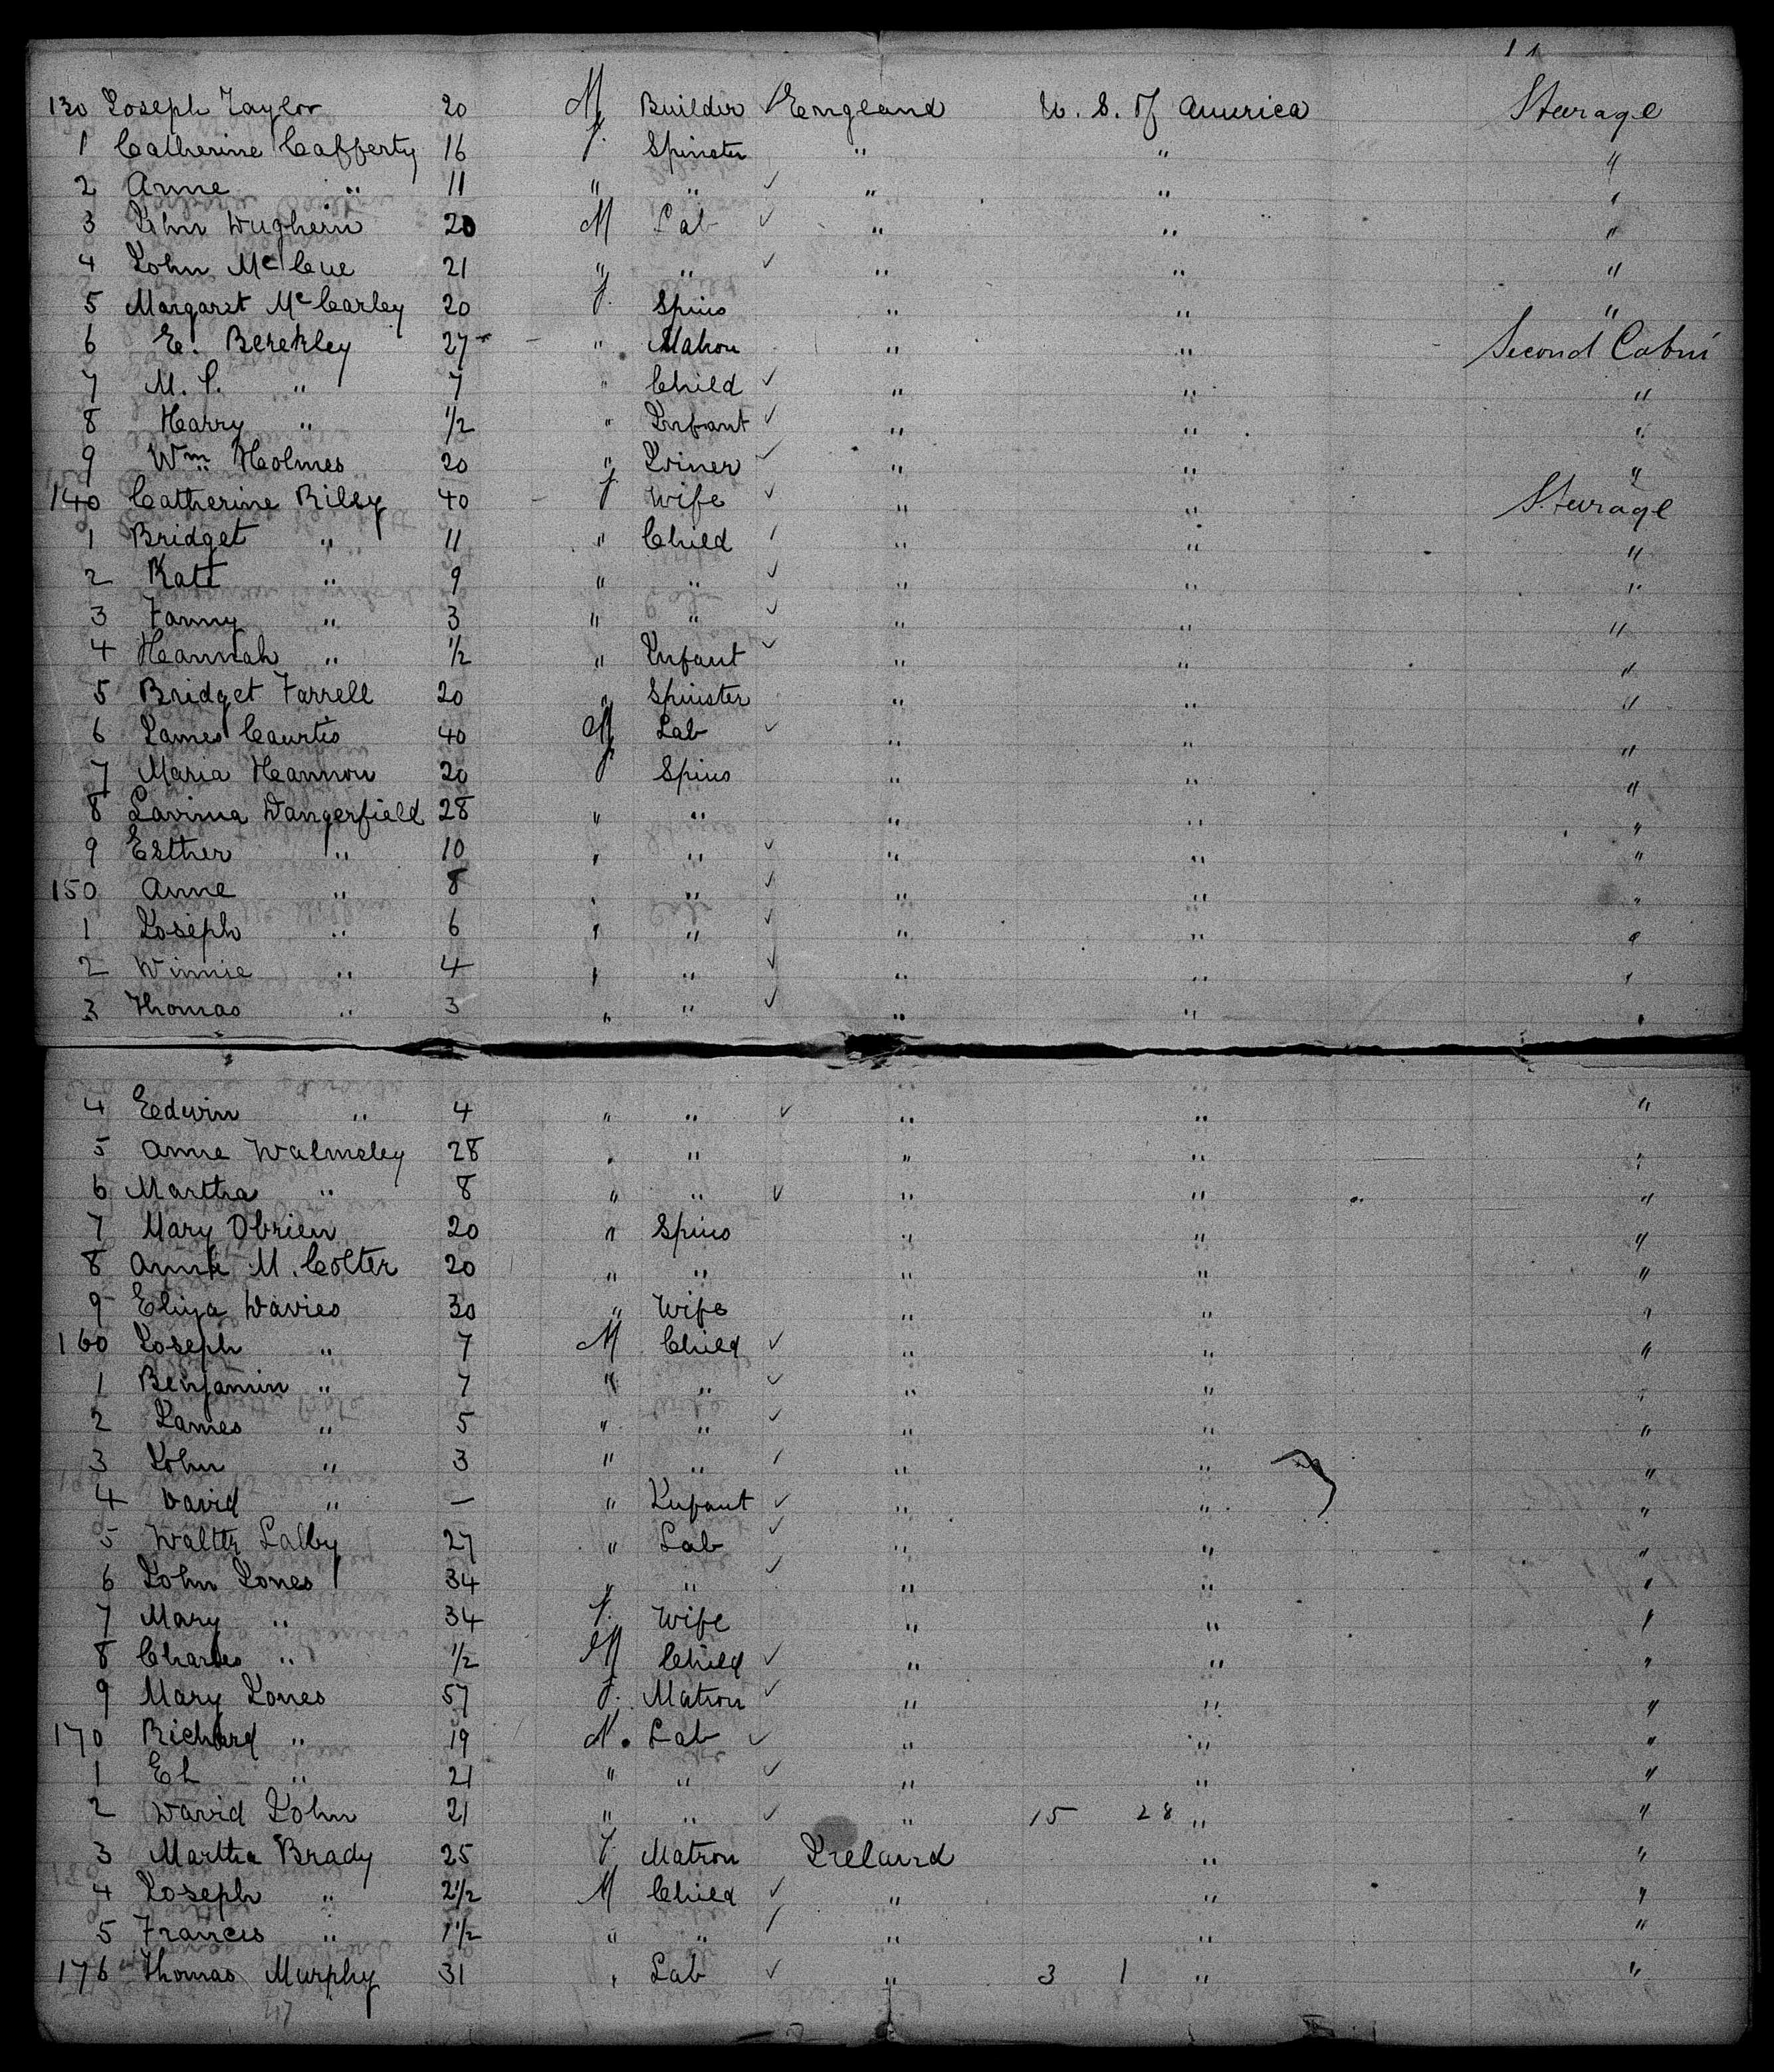 11
130 Joseph Taylor 20 M Builder ✓ England U. S. of America Steerage
1 Catherine Cafferty 16 f. Spinster " " "
2 Anne " 11 " " ✓ " " "
3 John Dughein 20 M Lab ✓ " " "
4 John McCue 21 " " ✓ " " "
5 Margaret McCarley 20 f. Spins " " "
6 E. Berekley 27 " Matron " " Second Cabin
7 M. C. " 7 " Child ✓ " " "
8 Harry " 1/2 " Infant ✓ " " "
9 Wm Holmes 20 " Joiner ✓ " " "
140 Catherine Riley 40 f Wife ✓ " " Steerage
1 Bridget " 11 " Child ✓ " " "
2 Kate " 9 " " ✓ " " "
3 Fanny " 3 " " ✓ " " "
4 Hannah " 1/2 " Infant ✓ " " "
5 Bridget Farrell 20 " Spinster " " "
6 James Courtis 40 M Lab ✓ " " "
7 Maria Hannon 20 f Spins " " "
8 Lavinia Dangerfield 28 " " " " "
9 Esther " 10 " " ✓ " " "
150 Anne " 8 " " ✓ " " "
1 Joseph " 6 " " ✓ " " "
2 Winnie " 4 " " ✓ " " "
3 Thomas " 3 " " ✓ " " "
4 Edwin " 4 " " ✓ " " "
5 Anne Walmsley 28 " " " " "
6 Martha " 8 " " ✓ " " "
7 Mary Obrien 20 " Spins " " "
8 Annie M. Colter 20 " " " " "
9 Eliza Davies 30 " Wife " " "
160 Joseph " 7 M Child ✓ " " "
1 Benjamin " 7 " " ✓ " " "
2 James " 5 " " ✓ " " "
3 John " 3 " " ✓ " " "
4 David " — " Infant ✓ " " "
5 Walter Lalby 27 " Lab ✓ " " "
6 John Jones 34 " " ✓ " " "
7 Mary " 34 f. Wife " " "
8 Charles " 1/2 M Child ✓ " " "
9 Mary Jones 57 f. Matron ✓ " " "
170 Richard " 19 M. Lab ✓ " " "
1 " 21 " " ✓ " " "
2 David John 21 " " ✓ " 15 28 " "
3 Martha Brady 25 f. Matron Ireland " "
4 Joseph " 2 1/2 M Child ✓ " " "
5 Francis " 1 1/2 " " ✓ " " "
176 Thomas Murphy 31 " Lab ✓ " 3 1 " "